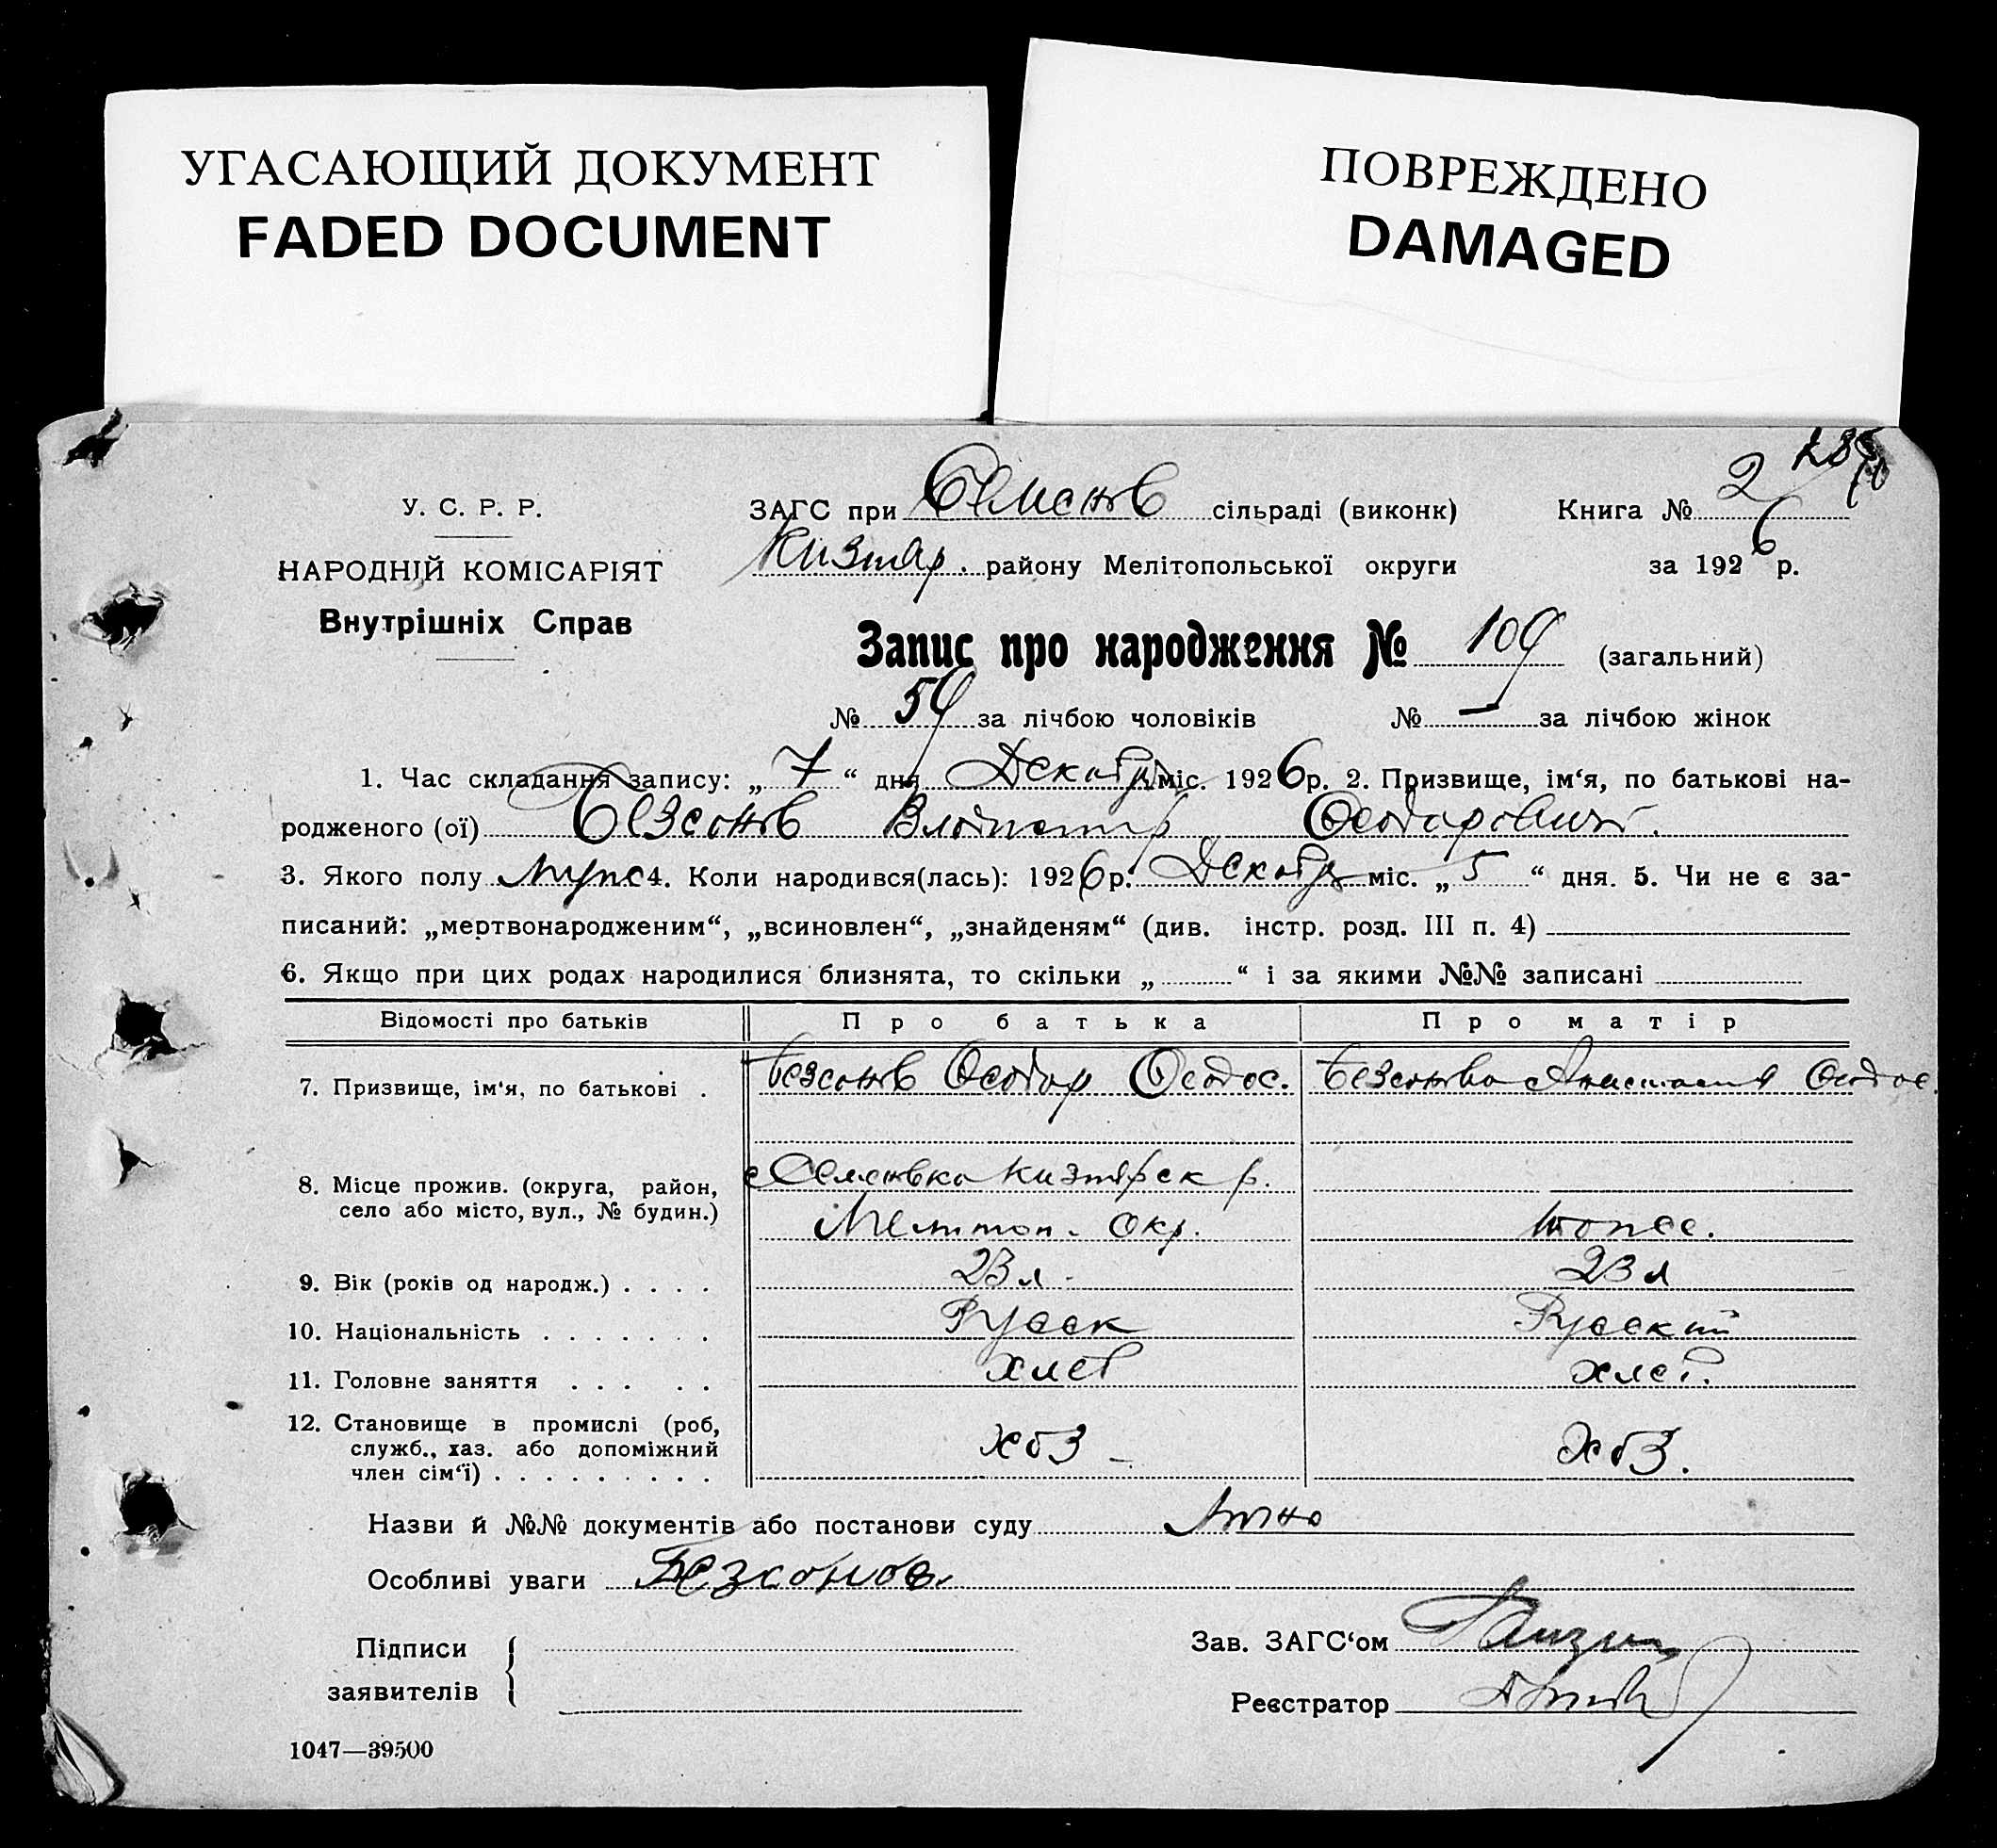 УГАСАЮЩИЙ ДОКУМЕНТ
FADED DOCUMENT
ПОВРЕЖДЕНО
DAMAGED
У. С. Р. Р.
НАРОДНІЙ КОМІСАРІЯТ
Внутрішніх Справ
ЗАГС при Семенов сільраді (виконк)
Книга № 2
Кизияр. району Мелітопольської округи
за 1926 р.
Запис про народження № 109 (загальний)
№ 59 за лічбою чоловіків № — за лічбою жінок
1. Час складання запису: „ 7 “ дня Декабр міс. 1926 р. 2. Призвище, ім‘я, по батькові на-
родженого (ої) Безсонов Владимир Феодорович.
3. Якого полу мужс 4. Коли народився(лась): 1926 р. Декабр міс. „ 5 “ дня. 5. Чи не є за-
писаний: „мертвонародженим“, „всиновлен“, „знайденям“ (див. інстр. розд. III п. 4)
6. Якщо при цих родах народилися близнята, то скільки „ “ і за якими №№ записані
Відомості про батьків Про батька Про матір
7. Призвище, ім‘я, по батькові . Безсонов Феодор Феодос. Безсонова Анастасия Феодос.
8. Місце прожив. (округа, район,
село або місто, вул., № будин.)
с Семеновка Кизиярск р.
Мелитоп. окр.
тоже.
9. Вік (років од народж.) . . . . 23 л. 23 л
10. Національність . . . . . . . Русск Русский
11. Головне заняття . . . . . хлеб хлеб.
12. Становище в промислі (роб,
служб., хаз. або допоміжний
член сім‘ї) . . . . . . . . .
хоз
хоз.
Назви й №№ документів або постанови суду лично
Особливі уваги Безсонов.
Підписи
заявителів
Зав. ЗАГС‘ом
Реєстратор
1047—39500